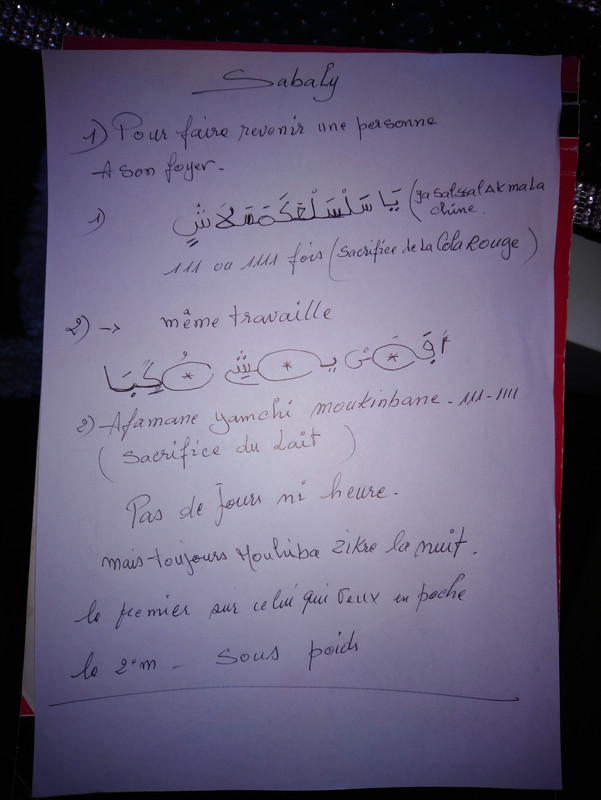 Sabaly
1) Pour faire revenir une personne
A son foyer.
1) يَا سَلْسَلْعَكَمَسَلَاشٍ (yasalssalAkmaLa
chine.
111 ou 1111 fois (Sacrifice de La Cola Rouge)
2) -> même travaille
2) Afamane yamchi moukinbane - 111 - 1111
(Sacrifice du Lait)
Pas de Jours ni heure.
mais toujours Mouhiba zikre la nuit.
le premier sur celui qui veux en poche
le 2em - Sous poids